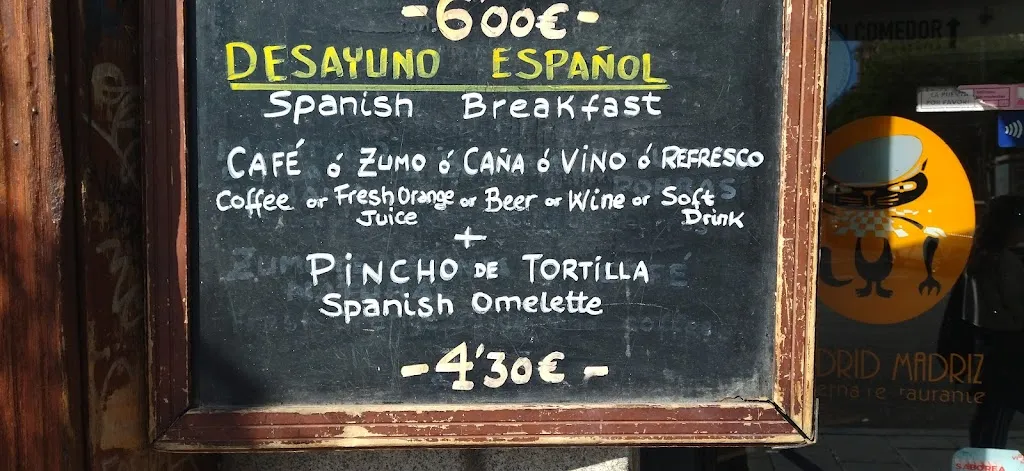 -6'00€-
DESAYUNO ESPAÑOL
Spanish Breakfast
CAFÉ ó ZUMO ó CAÑA ó VINO ó REFRESCO
Coffee or Fresh Orange Juice or Beer or Wine or Soft Drink
+
PINCHO DE TORTILLA
Spanish Omelette
-4'30€-
COMEDOR
POR FAVOR
MADRIZ